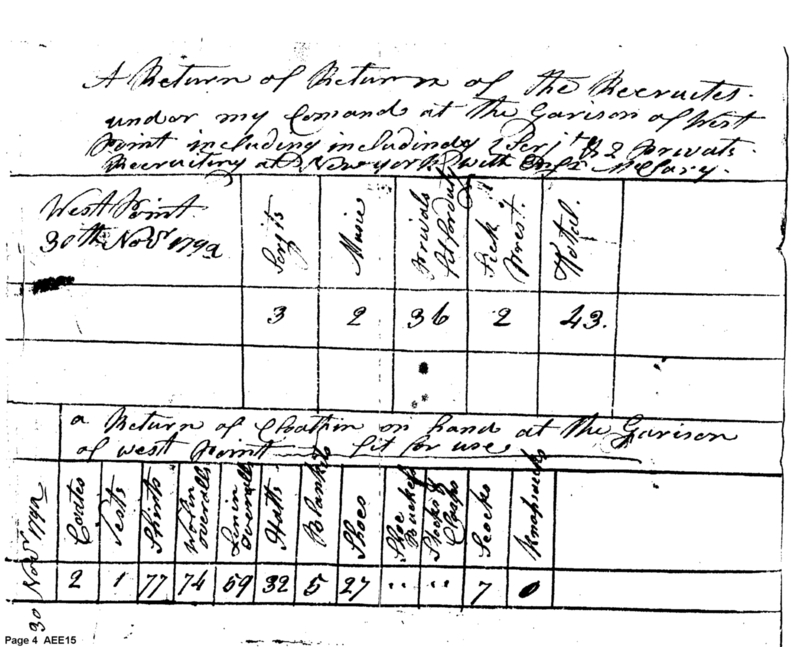 A Return of Return of the Recruites
under my Comand at the Garison of West
Point including includindg 2 Serjts & 2 privats
Recruiting at New york with Ensn McClary.
West Point
30th Novr 1792
Serjts
Music
privals fit for duty
Sick present.
Total.
3 2 36 2 43.
a Return of Cloathin on hand at the Garison
of west point fit for use
30 Novr 1792
Coates
Vests
Shirts
Wolin overalls
Linin overalls
Hatts
Blankits
Shoes
Shoe Buckels
Stocks & Clasps
Socks
Knapsacks
2 1 77 74 59 32 5 27 " " 7 0
Page 4 AEE15